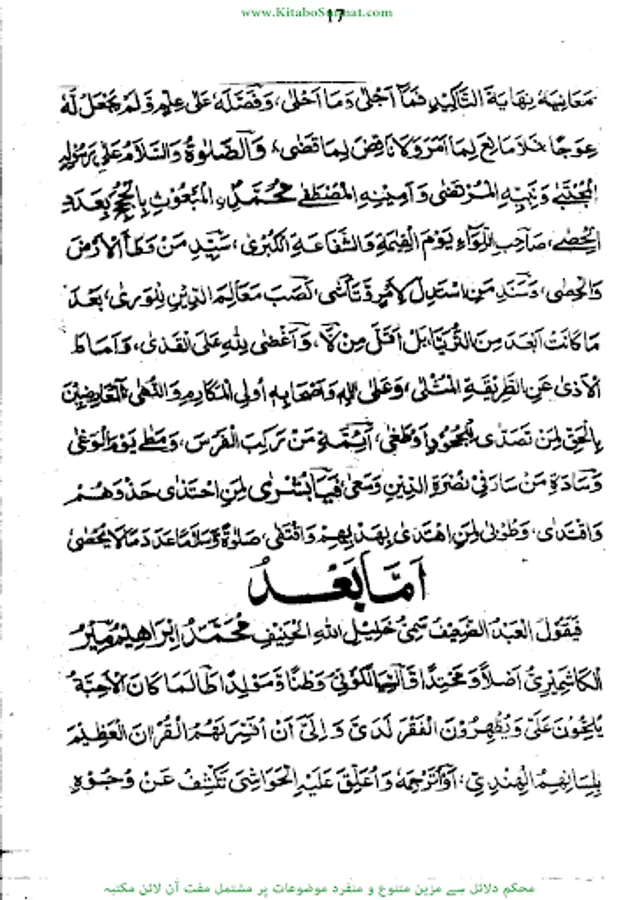 www.KitaboSunnat.com
17
مَعَانِيَهُ نِهَايَةَ التَّاكِيْدِ فَمَآ اَجْلٰى وَمَا اَحْلٰى، وَفَصَّلَهُ عَلٰى عِلْمٍ وَّلَمْ يَجْعَلْ لَّهُ
عِوَجًا فَلَا مَانِعَ لِمَا اَمَرَ وَلَا نَاقِضَ لِمَا قَضٰى، وَالصَّلٰوةُ وَالسَّلَامُ عَلٰى رَسُوْلِهِ
الْمُجْتَبٰى وَنَبِيِّهِ الْمُرْتَضٰى وَاَمِيْنِهِ الْمُصْطَفٰى مُحَمَّدٍ، الْمَبْعُوْثِ بِالْحُجَجِ بِعَدَدِ
الْحَصٰى، صَاحِبِ اللِّوَآءِ يَوْمَ الْقِيٰمَةِ وَالشَّفَاعَةِ الْكُبْرٰى، سَيِّدِ مَنْ وَطَأَ الْاَرْضَ
وَالْحَصٰى، وَسَنَدِ مَنِ اسْتَدَلَّ لِاَمْرٍ وَّتَاَسّٰى، نَصَبَ مَعَالِمَ الدِّيْنِ لِلْوَرٰى، بَعْدَ
مَا كَانَتْ اَبْعَدَ مِنَ الثُّرَيَّا بَلْ اَقَلَّ مِنْ لَّا، وَاَغْضٰى لِلّٰهِ عَلَى الْقَذٰى، وَاَمَاطَ
الْاَذٰى عَنِ الطَّرِيْقَةِ الْمُثْلٰى، وَعَلٰى اٰلِهِ وَاَصْحَابِهِ اُولِى الْمَكَارِمِ وَالنُّهٰى، الْمُعَارِضِيْنَ
بِالْحَقِّ لِمَنْ تَصَدّٰى لِلْجُحُوْدِ اَوْ طَغٰى، اَئِمَّةِ مَنْ رَكِبَ الْفَرَسَ، وَمَطٰى يَوْمَ الْوَغٰى
وَسَادَةِ مَنْ سَارَ فِىْ نُصْرَةِ الدِّيْنِ وَسَعٰى، فَيَا بُشْرٰى لِمَنِ احْتَذٰى حَذْوَهُمْ
وَاقْتَدٰى، وَطُوْبٰى لِمَنِ اهْتَدٰى بِهَدْيِهِمْ وَاقْتَفٰى، صَلٰوةً وَّسَلَامًا عَدَدَ مَا لَا يُحْصٰى
اَمَّا بَعْدُ
فَيَقُوْلُ الْعَبْدُ الضَّعِيْفُ سَمِيُّ خَلِيْلِ اللّٰهِ الْحَنِيْفِ مُحَمَّدْ اِبْرَاهِيْمْ مِيْرْ
الْكَاشْمِيْرِيُّ اَصْلًا وَّمَحْتِدًا وَالسِّيَالْكُوْتِيُّ وَطَنًا وَّمَوْلِدًا طَالَمَا كَانَ الْاَحِبَّةُ
يُلِحُّوْنَ عَلَيَّ وَيُظْهِرُوْنَ الْفَقْرَ لَدَيَّ وَاِلَيَّ اَنْ اُفَسِّرَ لَهُمُ الْقُرْاٰنَ الْعَظِيْمَ
بِلِسَانِهِمُ الْهِنْدِيِّ، اَوْ اُتَرْجِمَهُ وَاُعَلِّقَ عَلَيْهِ الْحَوَاشِيَ تَكْشِفُ عَنْ وُجُوْهِ
محکم دلائل سے مزین متنوع و منفرد موضوعات پر مشتمل مفت آن لائن مکتبہ